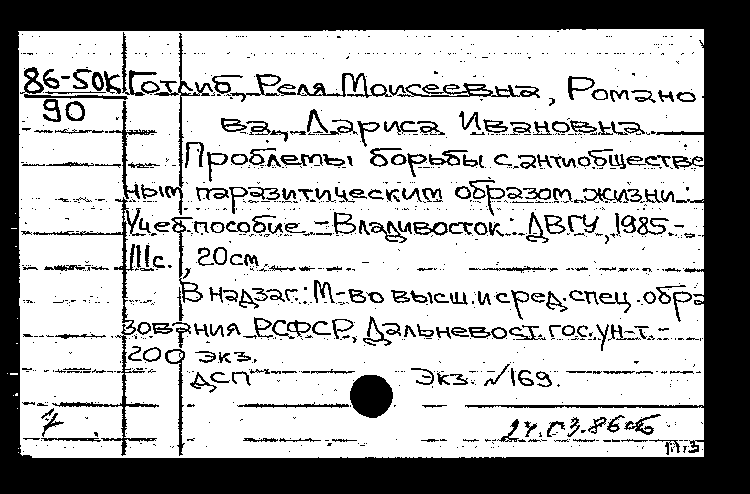 86-50К Готлиб, Реля Моисеевна, Романо
90
ва, Лариса Ивановна
Проблемы борьбы с антиобществе
ным паразитическим образом жизни:
Учеб пособие. - Владивосток: ДВГУ, 1985.-
111с., 20см
В надзаг.: М-во высш. и сред. спец. обра
зования РСФСР, Дальневост. гос. ун-т.-
200 экз.
ДСП Экз. №169.